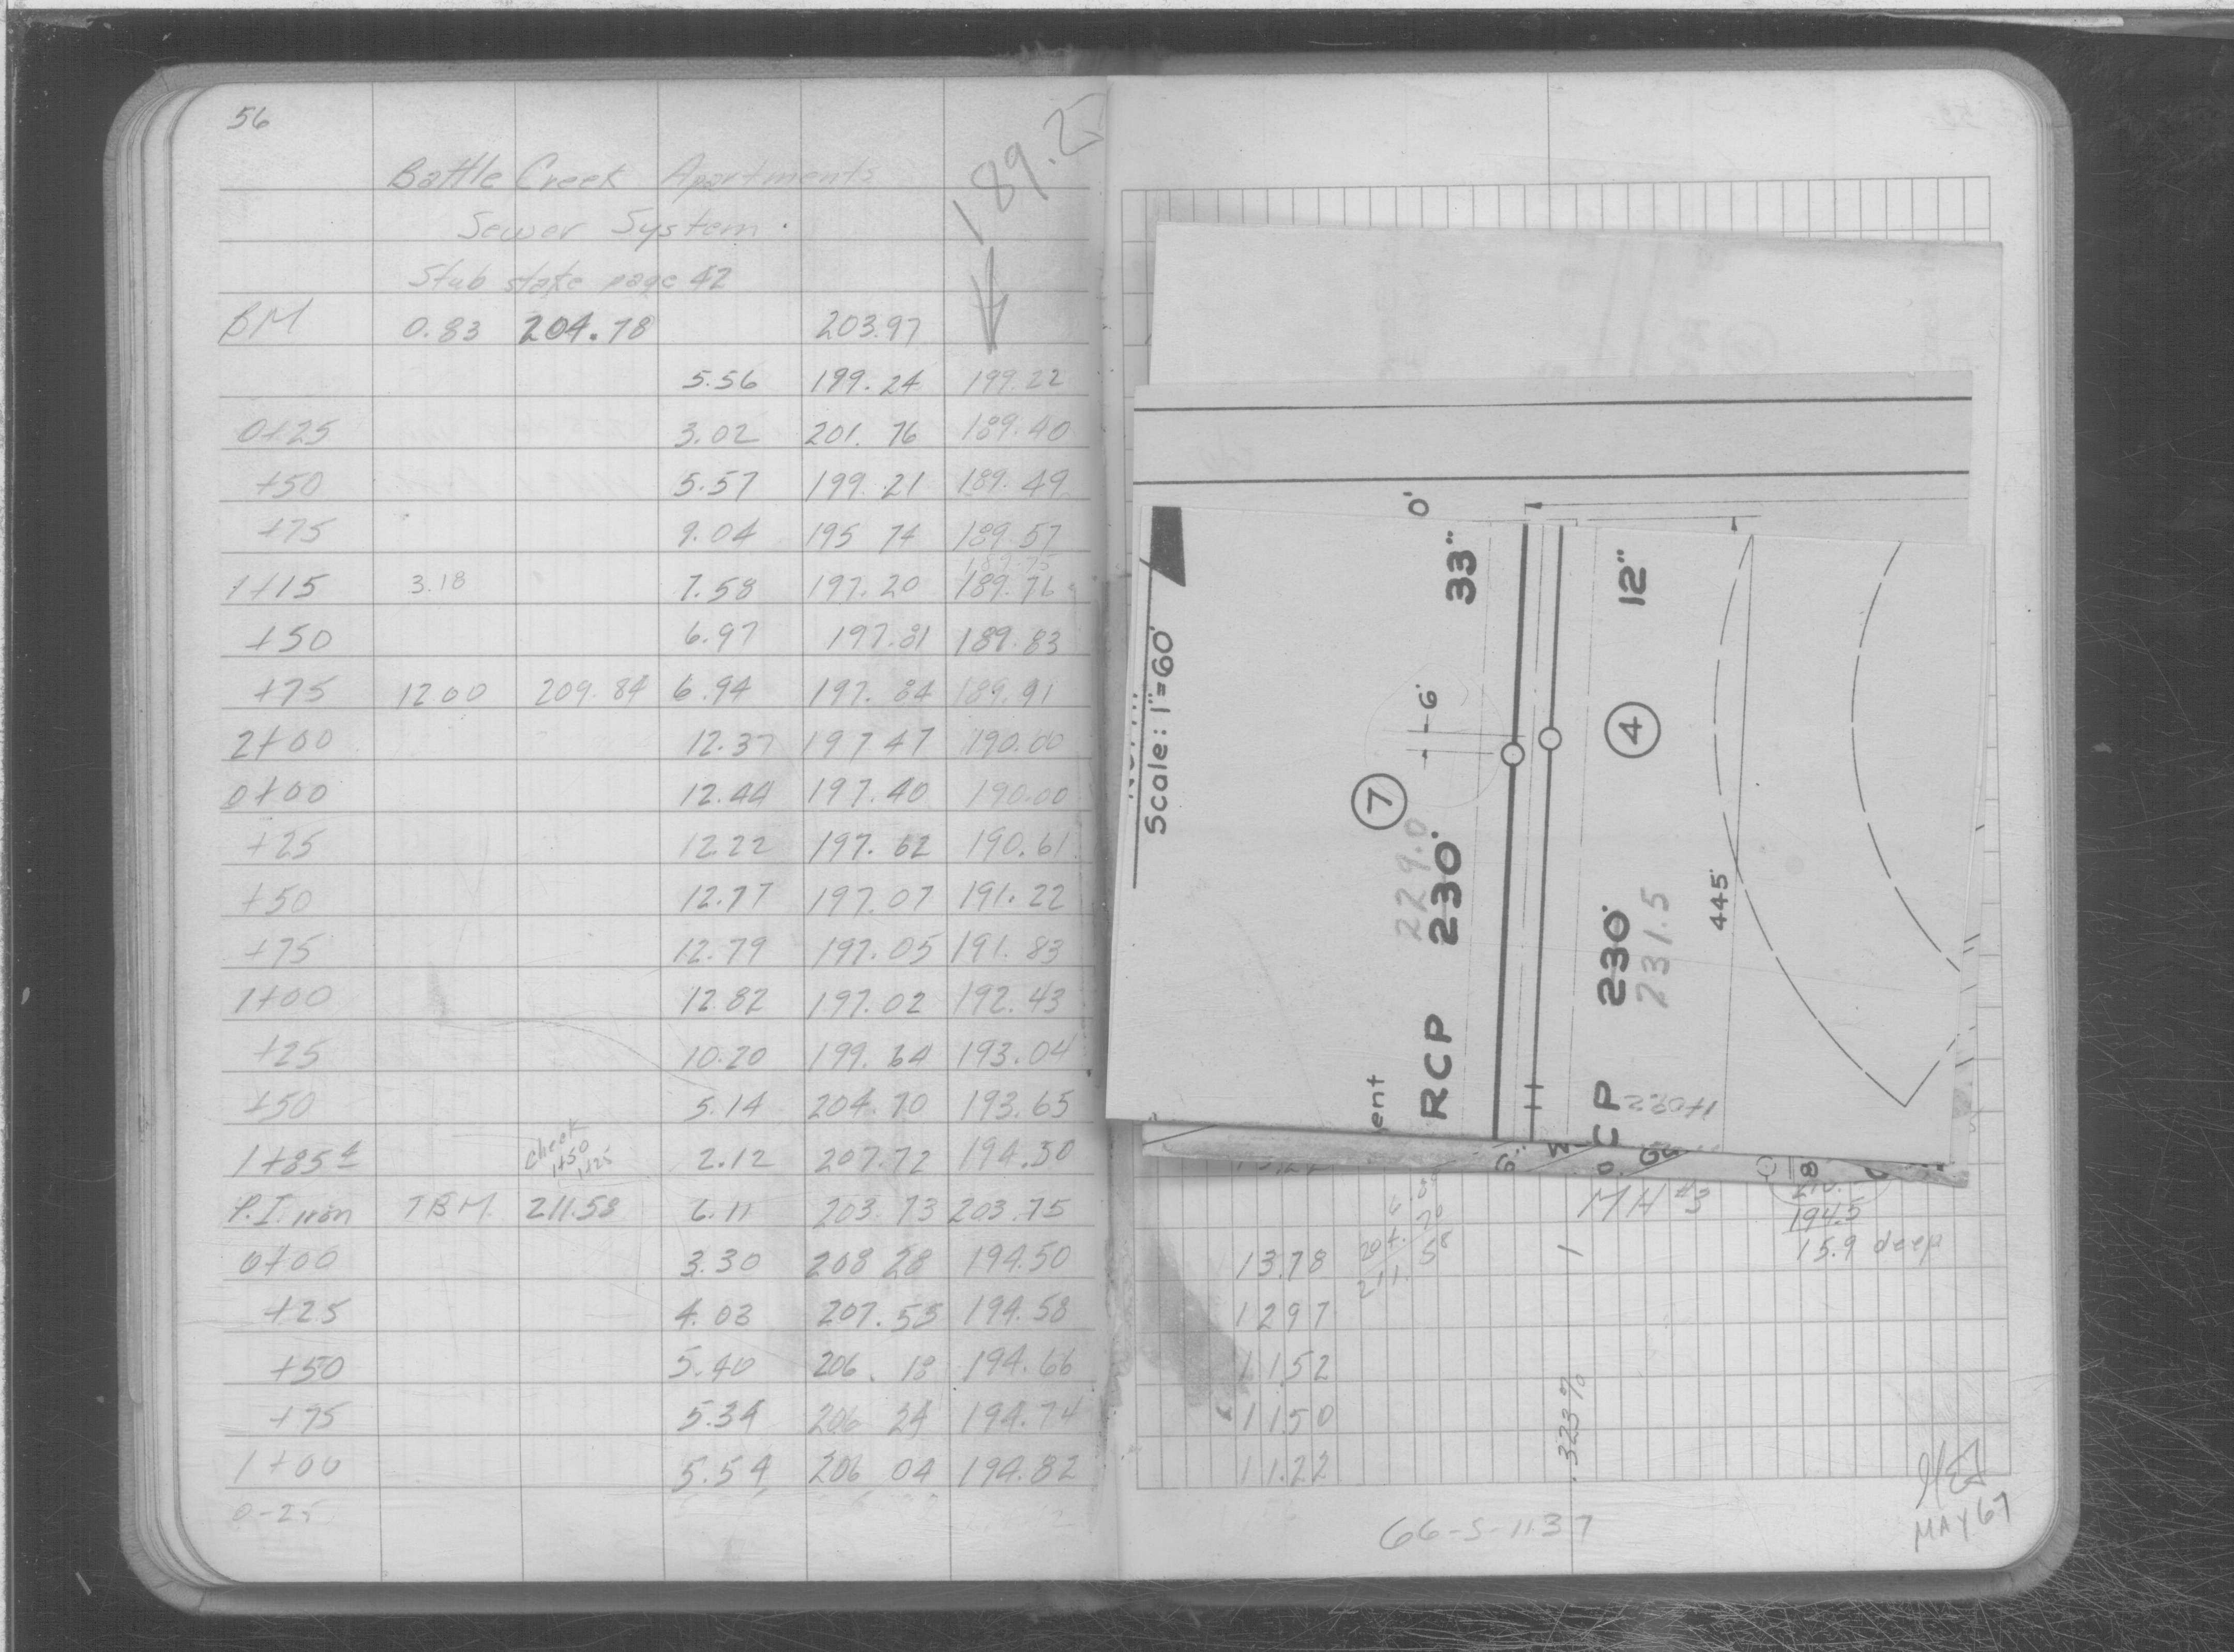 56
Battle Creek Apartments
Sewer System.
Stub stake page 42
189.25
BM 0.83 204.78 203.97
5.56 199.24 199.22
0+25 3.02 201.76 189.40
+50 5.57 199.21 189.49
+75 9.04 195 74 189.57
1+15 3.18 7.58 197.20 189.76
+50 6.97 197.81 189.83
+75 12.00 209.84 6.94 197.84 189.91
2+00 12.37 197 47 190.00
0+00 12.44 197.40 190.00
+25 12.22 197.62 190.61
+50 12.77 197.07 191.22
+75 12.79 197.05 191.83
1+00 12.82 197.02 192.43
+25 10.20 199.64 193.04
+50 5.14 204.70 193.65
check
1+50
1+25
1+85 2.12 207.72 194.50
P.I. iron TBM 211.58 6.11 203.73 203.75
0+00 3.30 208 28 194.50
+25 4.03 207.55 194.58
+50 5.40 206.18 194.66
+75 5.34 206 24 194.74
1+00 5.54 206 04 194.82
0-25
Scale: 1"=60'
0'
33"
12"
6'
7
4
229.0
RCP 230'
CP 230'
231.5
445'
ent
1+09.2
MH #3
194.5
15.9 deep
204.70
211.58
13.78
1297
11.52
11.50
11.22
.323%
66-S-1137
MAY 67